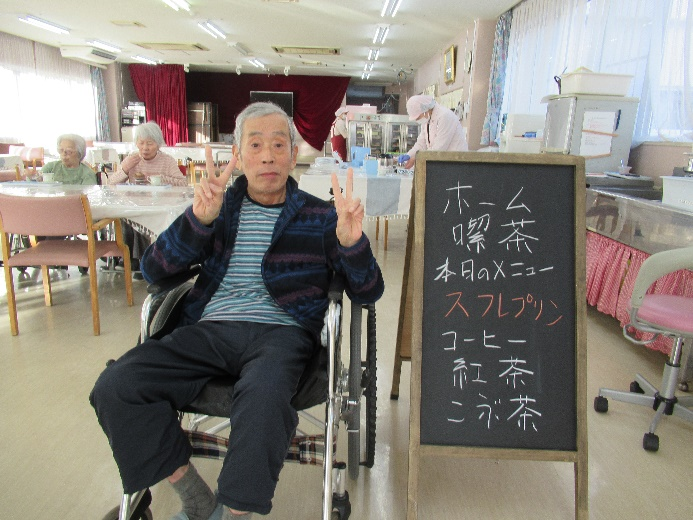 ホーム
喫茶
本日のメニュー
スフレプリン
コーヒー
紅茶
こぶ茶